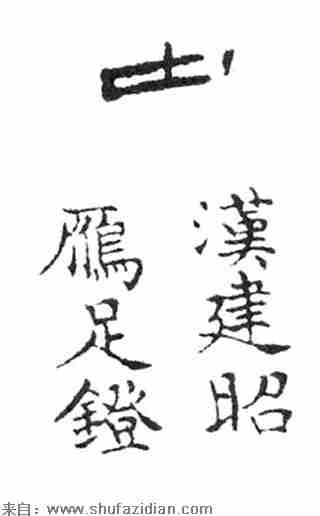 漢建昭
鴈足鐙
来自：www.shufazidian.com